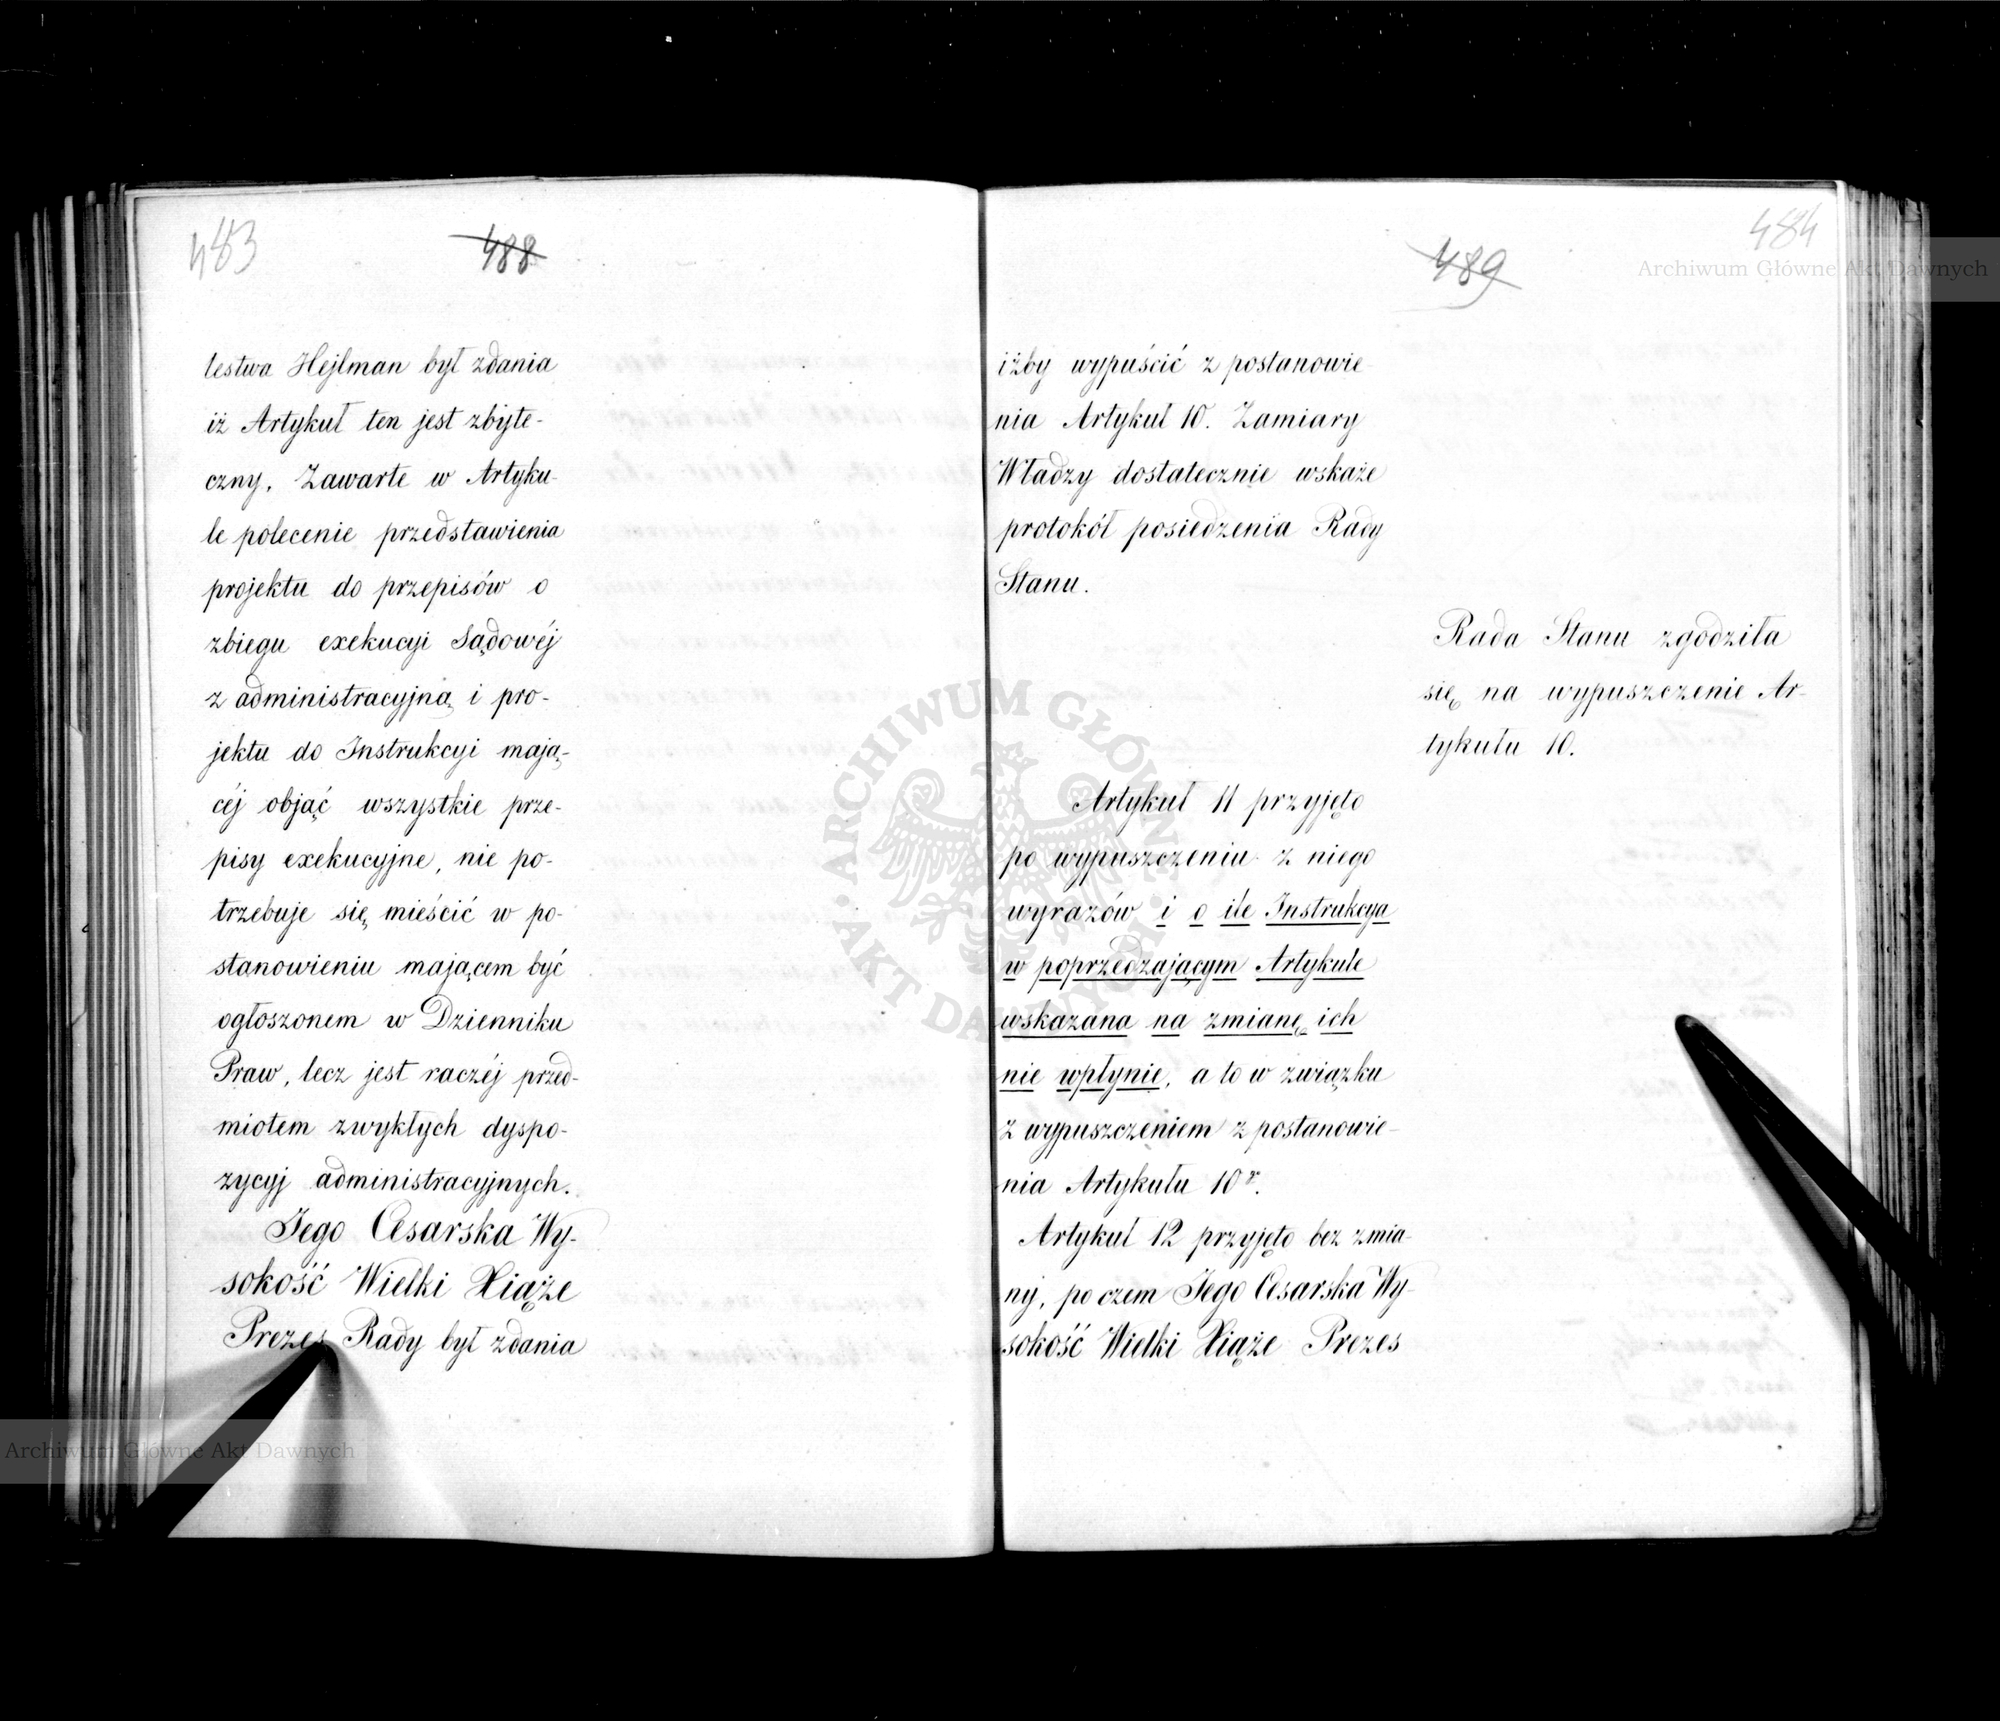 483
488
lestwa Hejlman był zdania
iż Artykuł ten jest zbyte-
czny. Zawarte w Artyku-
le polecenie przedstawienia
projektu do przepisów o
zbiegu exekucyi Sądowéj
z administracyjną i pro-
jektu do Instrukcyi mają-
céj objąć wszystkie prze-
pisy exekucyjne, nie po-
trzebuje się mieścić w po-
stanowieniu mającem być
ogłoszonem w Dzienniku
Praw, lecz jest raczéj przed-
miotem zwykłych dyspo-
zycyj administracyjnych.
Jego Cesarska Wy-
sokość Wielki Xiąże
Prezes Rady był zdania
489
484
iżby wypuścić z postanowie-
nia Artykuł 10. Zamiary
Władzy dostatecznie wskaże
protokół posiedzenia Rady
Stanu.
Rada Stanu zgodziła
się na wypuszczenie Ar-
tykułu 10.
Artykuł 11 przyjęto
po wypuszczeniu z niego
wyrazów i o ile Instrukcya
w poprzedzającym Artykule
wskazana na zmianę ich
nie wpłynie, a to w związku
z wypuszczeniem z postanowie-
nia Artykułu 10º.
Artykuł 12 przyjęto bez zmia-
ny, po czem Jego Cesarska Wy-
sokość Wielki Xiąże Prezes
Archiwum Główne Akt Dawnych
Archiwum Główne Akt Dawnych
ARCHIWUM GŁÓWNE
AKT DAWNYCH